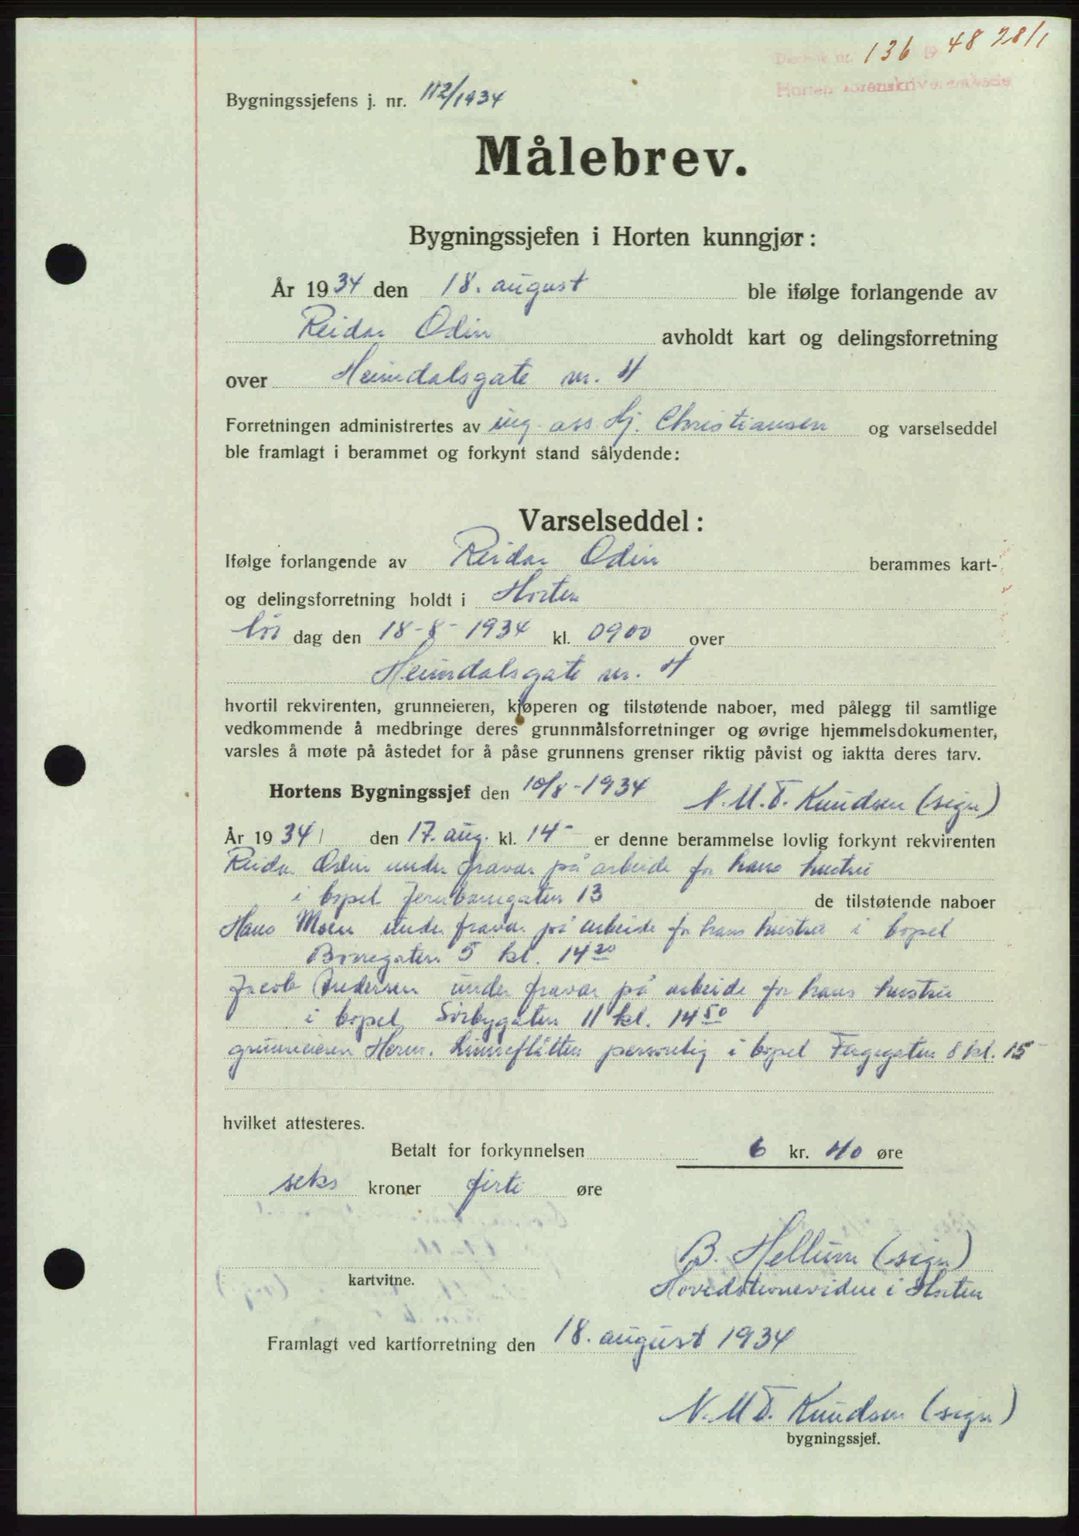 136 48 28/1
Horten sorenskriverembede
Bygningssjefens j. nr. 112/1934
Målebrev.
Bygningssjefen i Horten kunngjør:
År 1934 den 18. august ble ifølge forlangende av
Reidar Odin avholdt kart og delingsforretning
over Heimdalsgate nr. 4
Forretningen administrertes av ing. ass. Hj. Christiansen og varselseddel
ble framlagt i berammet og forkynt stand sålydende:
Varselseddel:
Ifølge forlangende av Reidar Odin berammes kart-
og delingsforretning holdt i Horten
lør dag den 18-8-1934 kl. 0900 over
Heimdalsgate nr. 4
hvortil rekvirenten, grunneieren, kjøperen og tilstøtende naboer, med pålegg til samtlige
vedkommende å medbringe deres grunnmålsforretninger og øvrige hjemmelsdokumenter,
varsles å møte på åstedet for å påse grunnens grenser riktig påvist og iaktta deres tarv.
Hortens Bygningssjef den 10/8-1934 N. M. T. Knudsen (sign)
År 1934 den 17. aug. kl. 14- er denne berammelse lovlig forkynt rekvirenten
Reidar Odin under fravær på arbeide for hans hustru
i bopel Jernbanegaten 13 de tilstøtende naboer
Hans Moen under fravær på arbeide for hans hustru i bopel
Borregaten 5 kl. 14 20
Jacob Andersen under fravær på arbeide for hans hustru
i bopel Sørbygaten 11 kl. 14 50
grunneieren Herm. personlig i bopel Fergegaten 8 kl. 15-
hvilket attesteres.
Betalt for forkynnelsen 6 kr. 40 øre
seks kroner førti øre
B. Hellum (sign)
Hovedstevnevidne i Horten
kartvitne.
Framlagt ved kartforretning den 18. august 1934
N. M. T. Knudsen (sign)
bygningssjef.